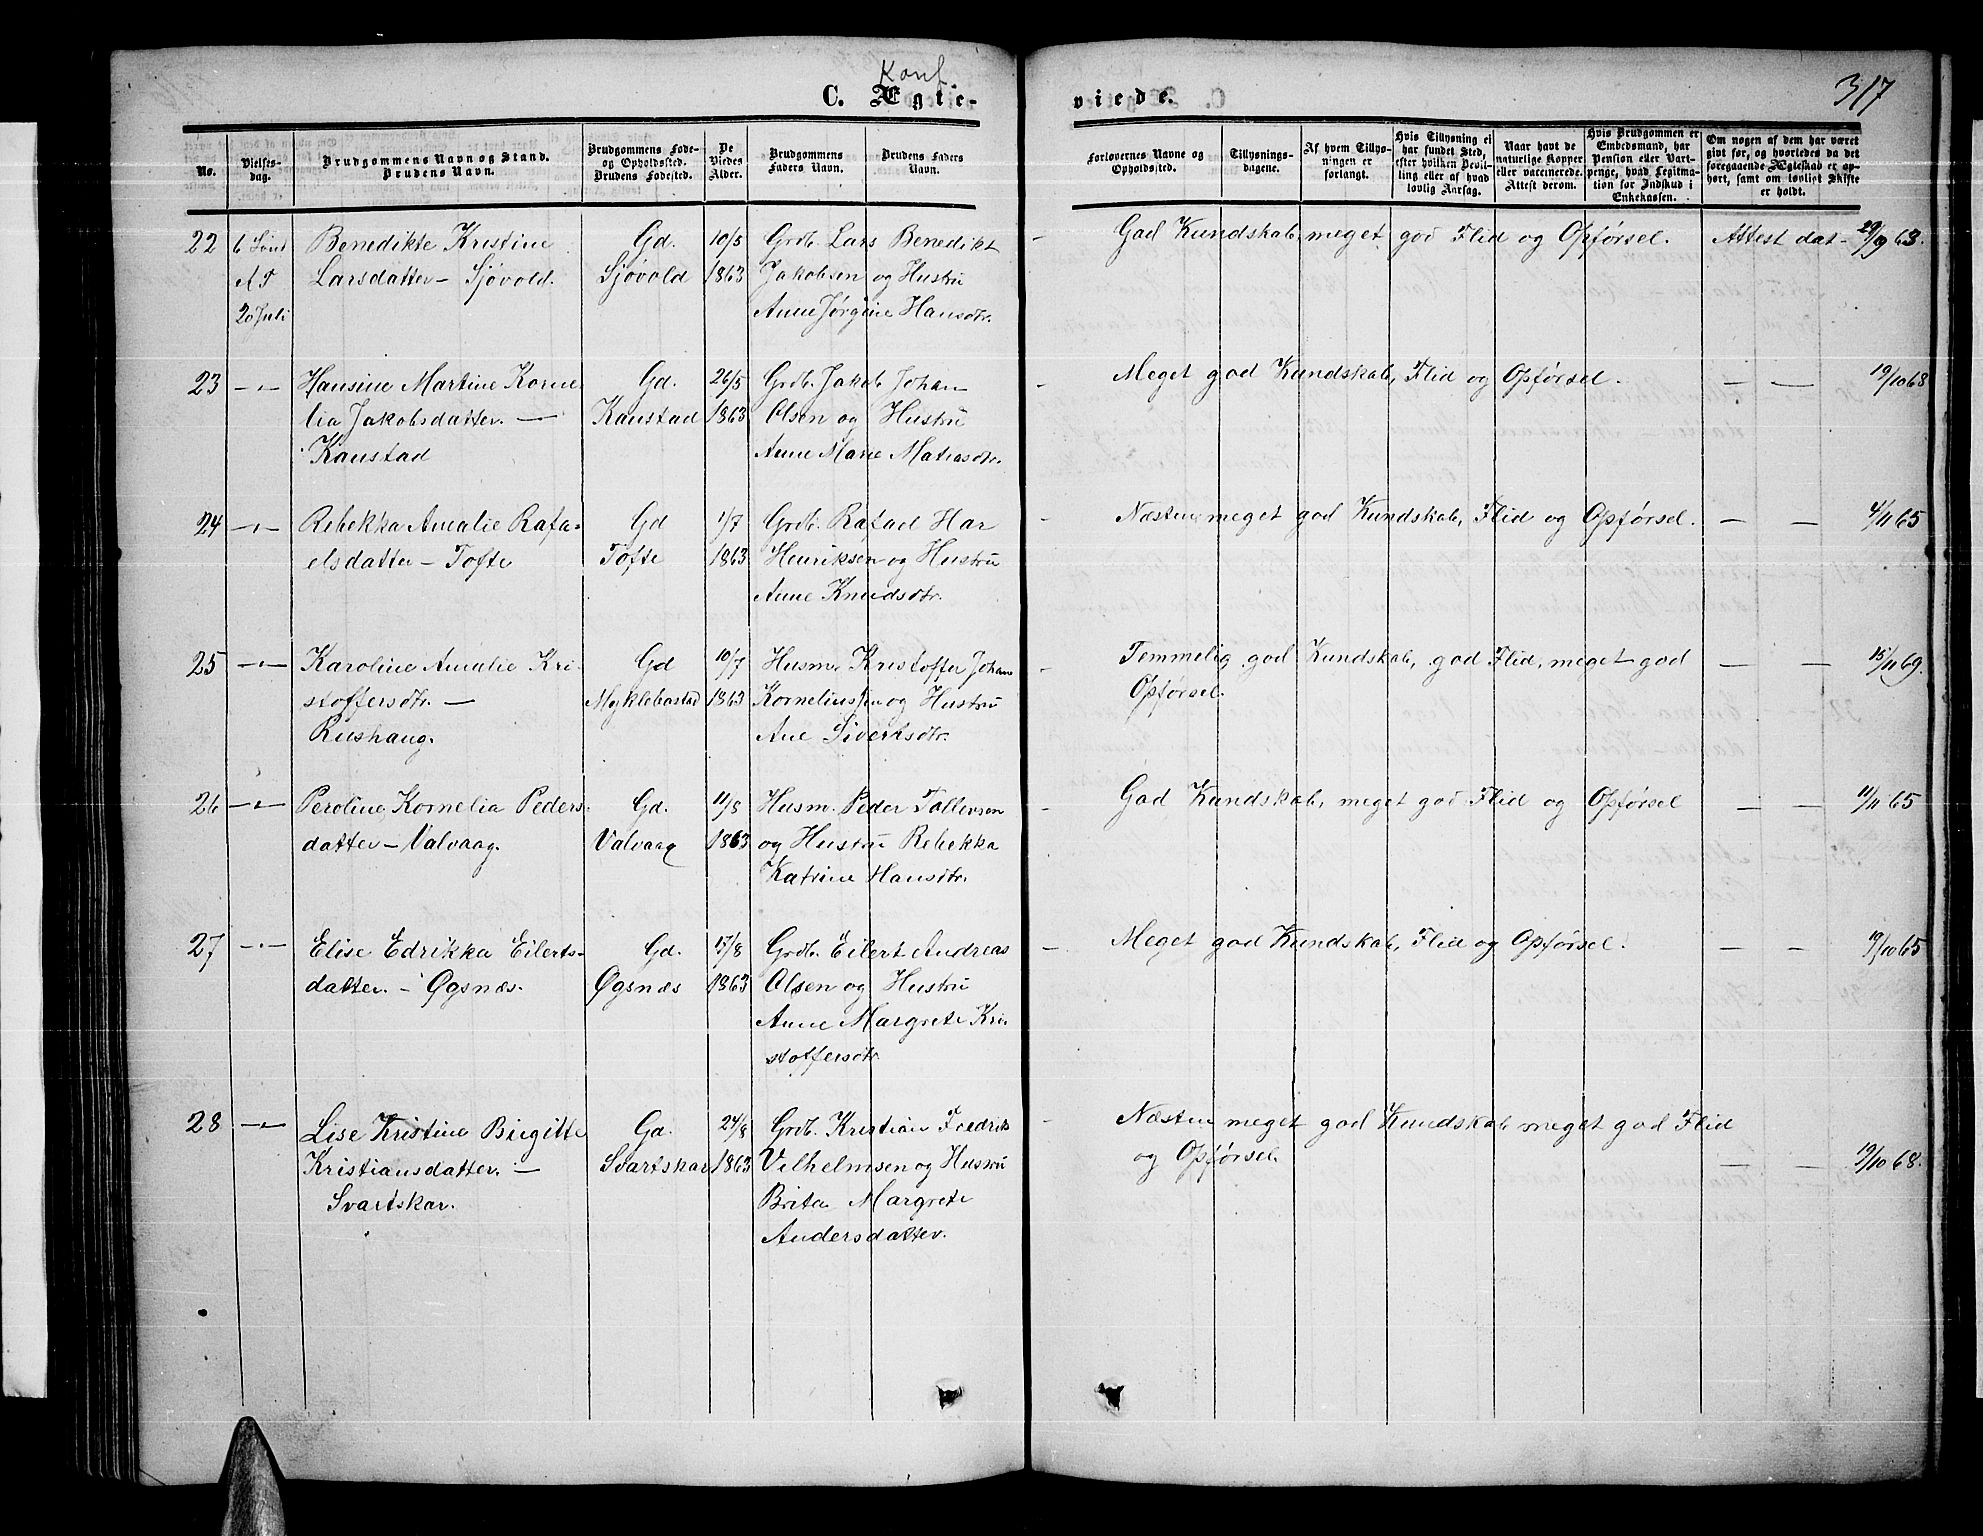 Konf.
C. Ægte-
viede.
317
No.
Vielses-
dag.
Brudgommens Navn og Stand.
Brudens Navn.
Brudgommens Føde-
og Opholdssted.
Brudens Fødested.
De
Viedes
Alder.
Brudgommens
Faders Navn.
Brudens Faders
Navn.
Forlovernes Navne og
Opholdssted.
Tillysnings-
dagene.
Af hvem Tillys-
ningen er
forlangt.
Hvis Tillysning ei
har fundet Sted,
efter hvilken Bevil-
ling eller af hvad
lovlig Aarsag.
Naar havt de
naturlige Kopper
eller vaccinerede.
Attest derom.
Hvis Brudgommen er
Embedsmand, har
Pension eller Vart-
penge, hvad Legitima-
tion for Indskud i
Enkekassen.
Om nogen af dem har været
givt før, og hvorledes da det
foregaaende Ægteskab er op-
hørt, samt om lovligt Skifte
er holdt.
22
6 Sönd
A T
20 Juli
Benedikte Kristine
Larsdatter - Sjövold.
Gd.
Sjövold
10/5
1863
Grdb. Lars Benedikt
Jakobsen og Hustru
Anne Jørgine Hansdtr.
God Kundskab, meget god Flid og Opførsel.
Attest dat - 29/9 63.
23
-"-
Hansine Martine Korne
lia Jakobsdatter. -
Kanstad
Gd.
Kanstad
26/5
1863
Grdb. Jakob Johan
Olsen og Hustru
Anne Marie Matiasdtr.
Meget god Kundskab, Flid og Opførsel.
- - 19/10 68
24
-"-
Rebekka Amalie Rafa-
elsdatter - Tofte
Gd
Tofte
1/7
1863
Grdb. Rafael Har
Henriksen og Hustru
Anne Knudsdtr.
Næsten meget god Kundskab, Flid og Opførsel.
- - 4/11 65
25
-"-
Karoline Amalie Kri-
stoffersdtr. -
Rushaug.
Gd
Myklebostad
10/7
1863
Husm. Kristoffer Johan
Korneliussen og Hustru
Ane Sivertsdtr.
Temmelig god Kundskab, god Flid, meget god
Opførsel.
- - 15/11 69.
26
-"-
Peroline Kornelia Peders-
datter - Valvaag.
Gd.
Valvaag
11/8
1863
Husm. Peder Tollevsen
og Hustru Rebekka
Katrine Hansdtr.
God Kundskab, meget god Flid og Opførsel
- - 11/11 65
27
-"-
Elise Edrikka Eilerts-
datter. - Øgsnæs.
Gd.
Øgsnæs
15/8
1863
Grdb. Eilert Andreas
Olsen og Hustru
Anne Margrete Kri-
stoffersdtr.
Meget god Kundskab, Flid og Opførsel.
- - 19/10 65
28
-"-
Lise Kristine Birgitte
Kristiansdatter. -
Svartskar.
Gd.
Svartskar
24/8
1863
Grdb. Kristian Fredrik
Vilhelmsen og Hustru
Brita Margrete
Andersdatter.
Næsten meget god Kundskab meget god Flid
og Opførsel.
- - 19/10 68.